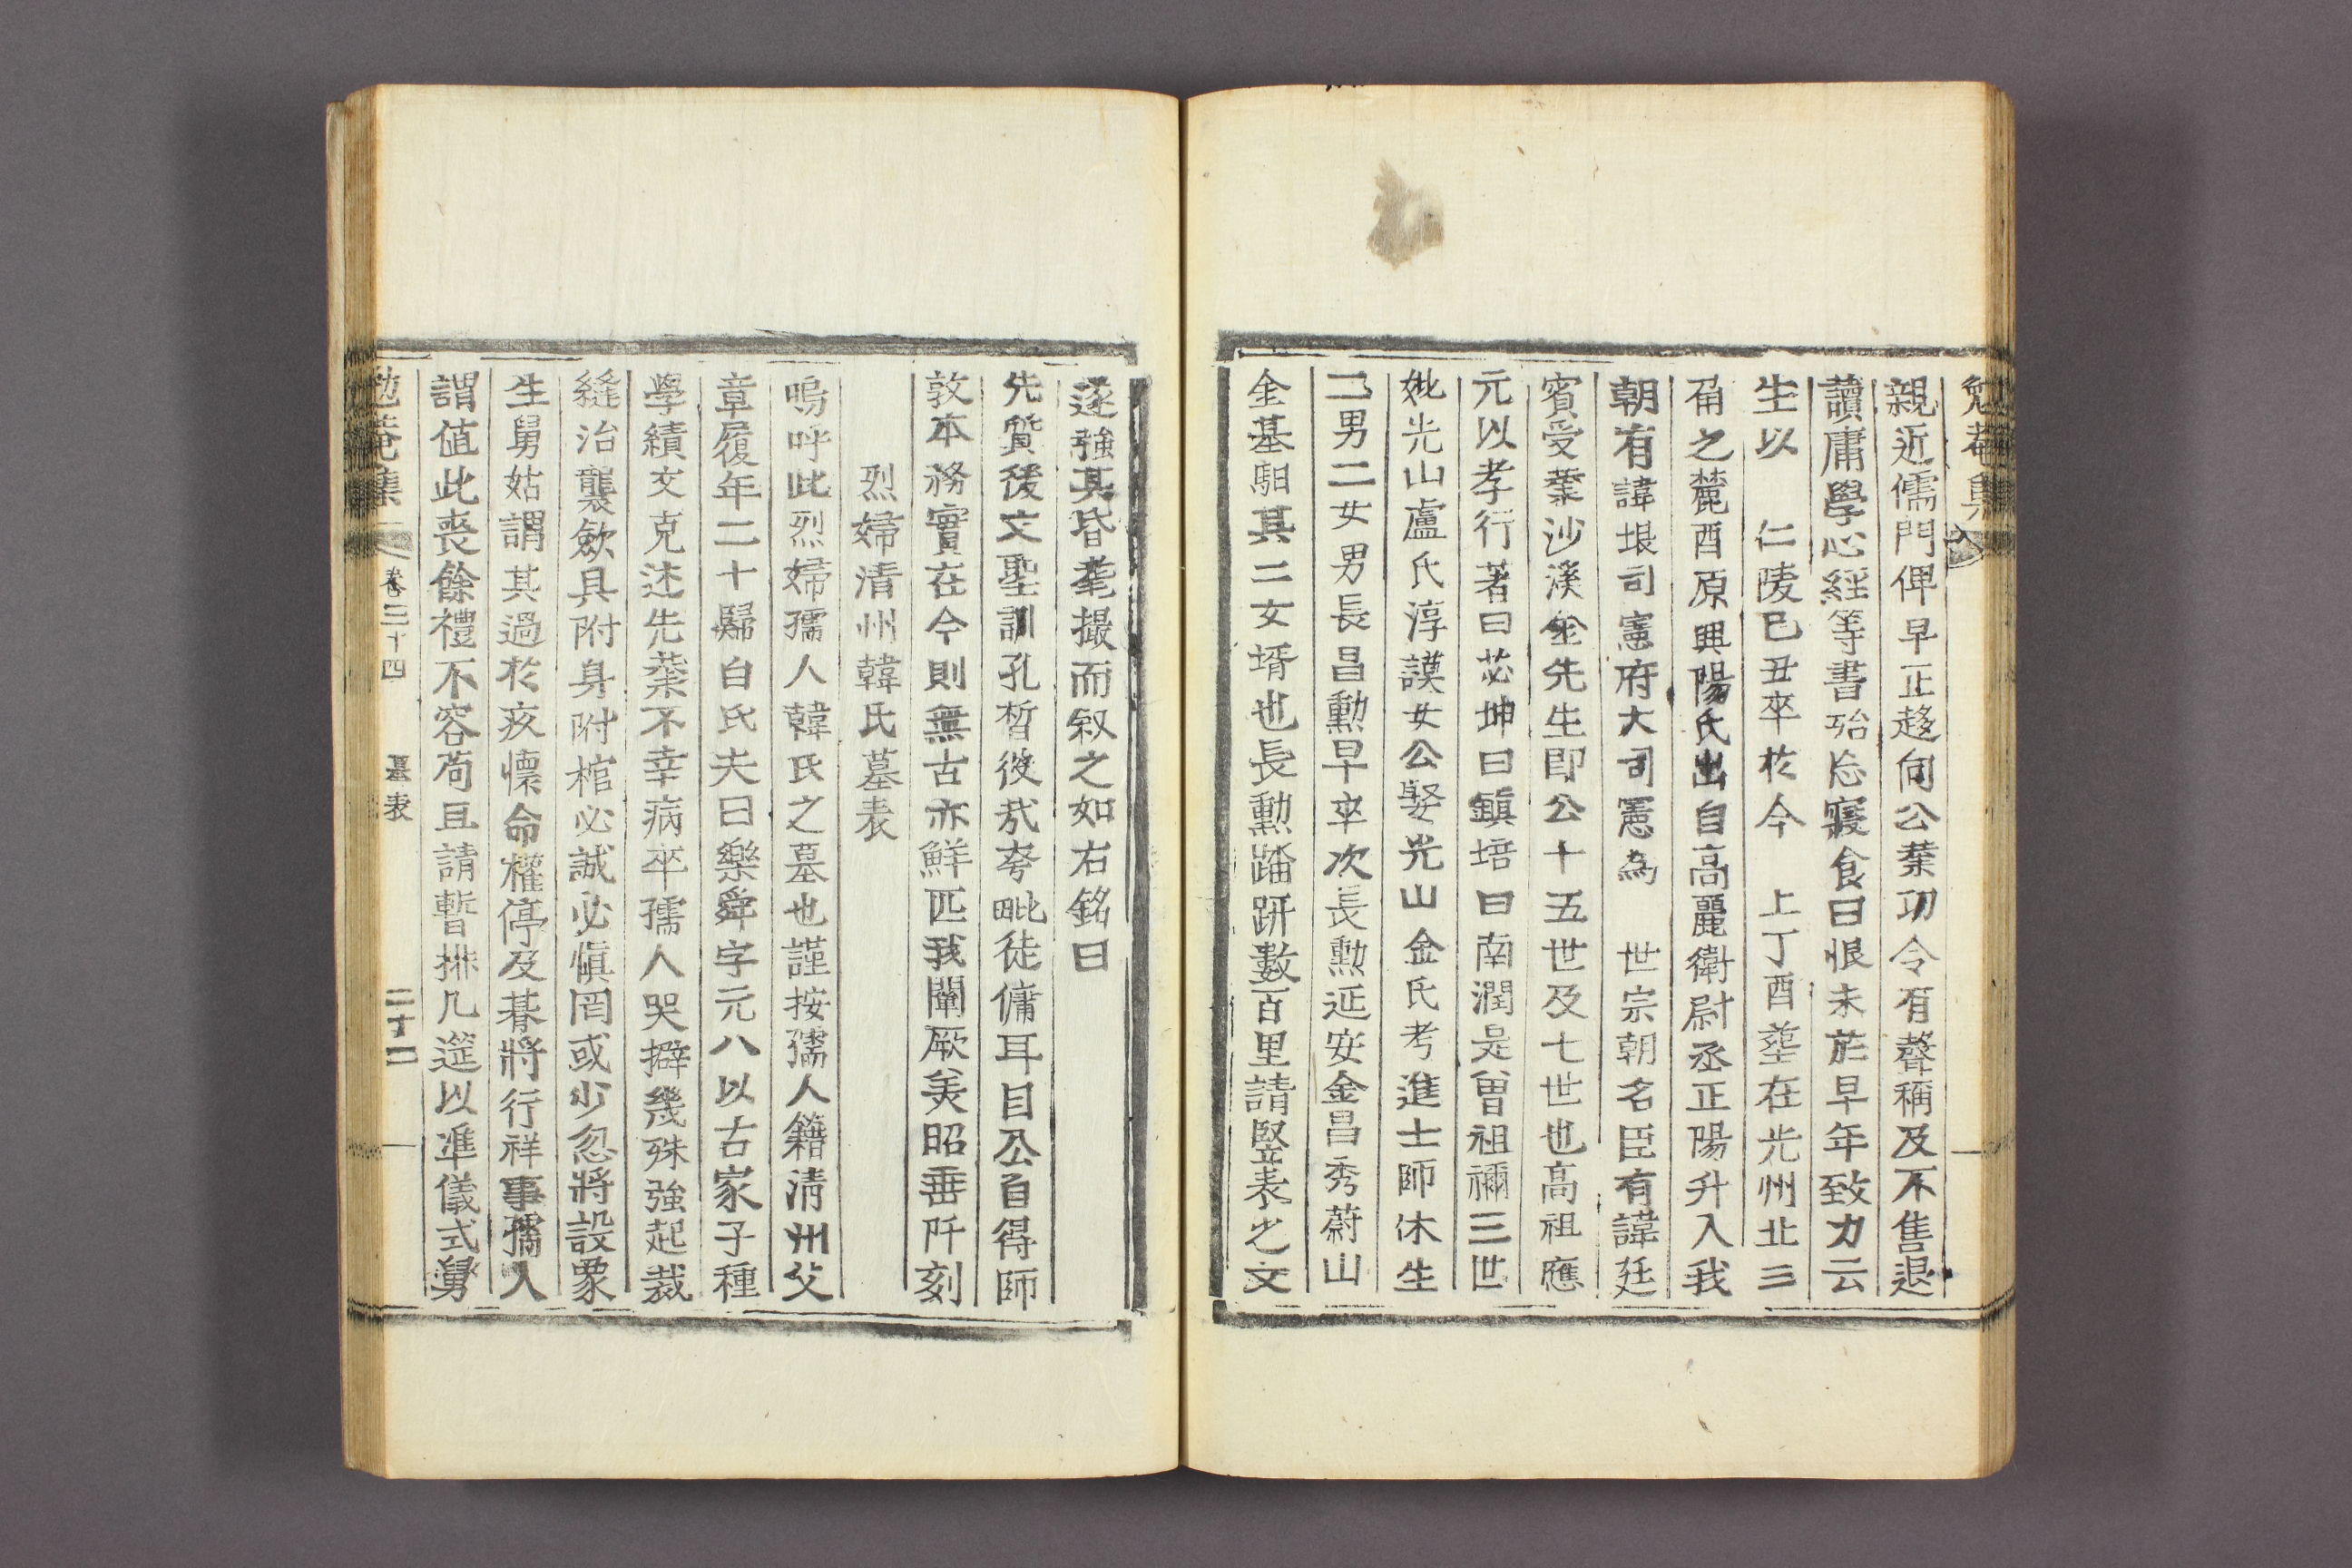 親近儒門俾早正趍向公業功令有聲稱及不售退
讀庸學心經等書殆忘寢食曰恨未於早年致力云
生以 仁陵己丑卒於今 上丁酉葬在光州北三
角之麓酉原興陽氏出自高麗衛尉丞正陽升入我
朝有諱垠司憲府大司憲為 世宗朝名臣有諱廷
賓受業沙溪金先生即公十五世及七世也高祖應
元以孝行著曰苾坤曰鎮培曰南潤是曾祖禰三世
妣光山盧氏淳謨女公娶光山金氏考進士師休生
二男二女男長昌勳早卒次長勳延安金昌秀蔚山
金基駰其二女壻也長勳踏趼數百里請竪表之文
遂強其昏耄撮而叙之如右銘曰
先質後文聖訓孔晳彼哉夸毗徒傭耳目公自得師
敦本務實在今則無古亦鮮匹我闡厥美昭垂阡刻
烈婦清州韓氏墓表
嗚呼此烈婦孺人韓氏之墓也謹按孺人籍淸州父
章履年二十歸白氏夫曰樂舜字元八以古家子種
學績文克述先業不幸病卒孺人哭擗幾殊強起裁
縫治襲歛具附身附棺必誠必愼罔或少忽將設象
生舅姑謂其過於哀懷命權停及朞將行祥事孺人
謂值此喪餘禮不容苟且請暫排几筵以準儀式舅
勉菴集 卷三十四 墓表 二十二